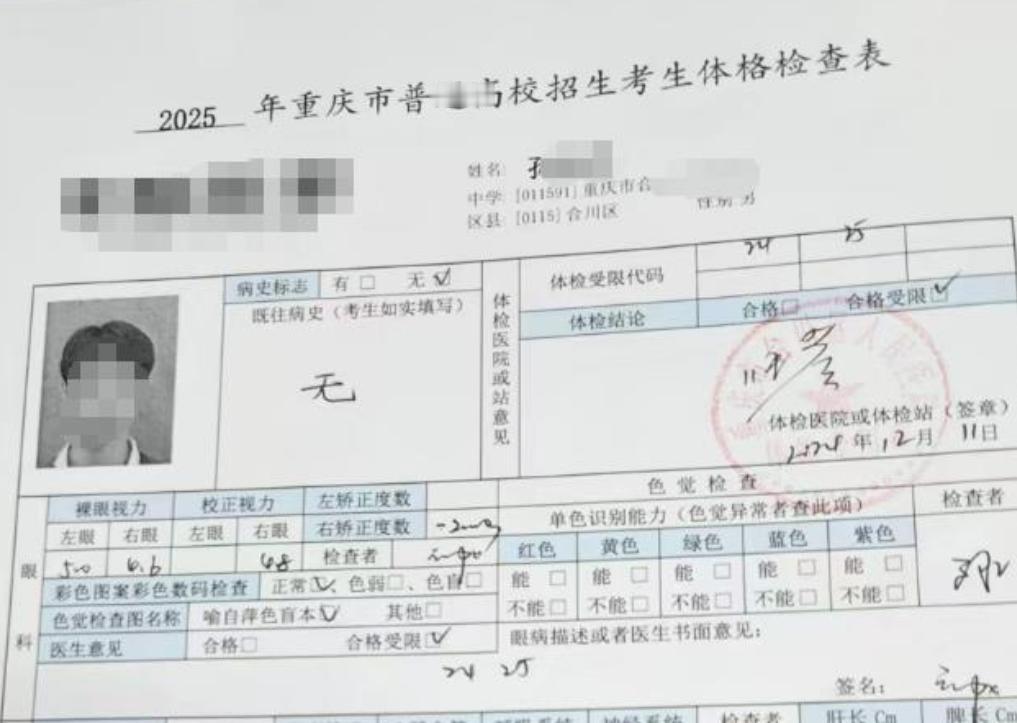 2025 年重庆市普 高校招生考生体格检查表
姓名:
中学: [011591] 重庆市合
性别 男
区县: [0115] 合川区
病史标志 有□ 无☑
既往病史（考生如实填写）
无
体检医院或站意见
体检受限代码 24 25
体检结论 合格□ 合格受限☑
体检医院或体检站（签章）
2024年12月11日
眼科
裸眼视力 校正视力 左矫正度数
左眼 右眼 左眼 右眼 右矫正度数
5.0 4.6 4.8 检查者
彩色图案彩色数码检查 正常☑、色弱□、色盲□
色觉检查图名称 喻自萍色盲本☑ 其他□
医生意见 合格□ 合格受限☑
24 25
色觉检查
单色识别能力（色觉异常者查此项）
检查者
红色 黄色 绿色 蓝色 紫色
能□ 能□ 能□ 能□ 能□
不能□ 不能□ 不能□ 不能□ 不能□
眼病描述或者医生书面意见:
签名:
检查者 肝长 Cm 脾长 Cm